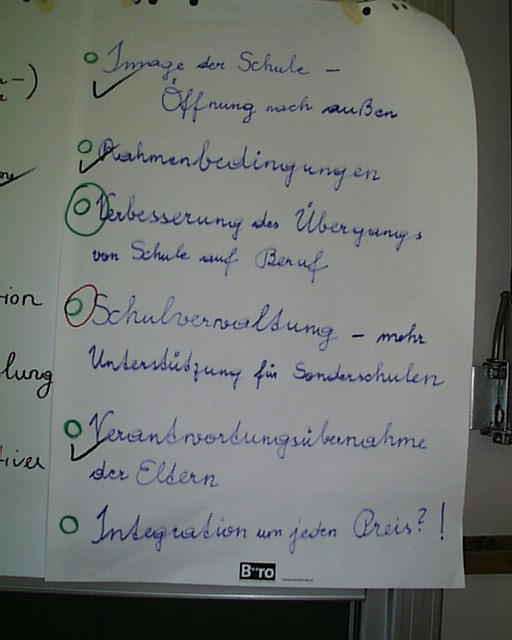 Image der Schule –
Öffnung nach außen
Rahmenbedingungen
Verbesserung des Übergangs
von Schule auf Beruf
Schulverwaltung – mehr
Unterstützung für Sonderschulen
Verantwortungsübernahme
der Eltern
Integration um jeden Preis?!
ion
lung
B ro